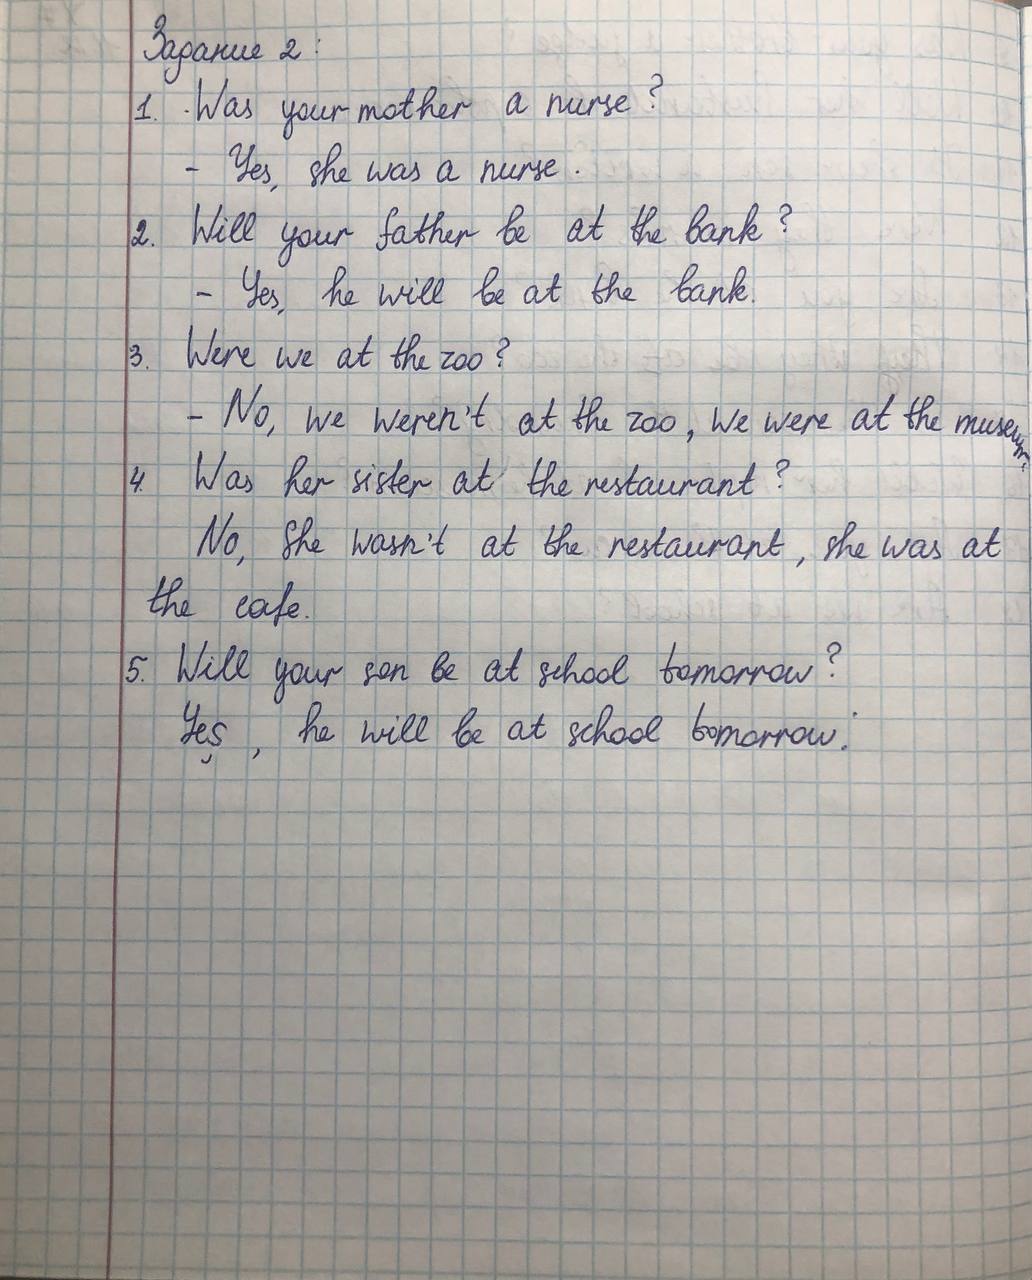 Задание 2:
1. Was your mother a nurse?
- Yes, she was a nurse.
2. Will your father be at the bank?
- Yes, he will be at the bank.
3. Were we at the zoo?
- No, we weren't at the zoo, we were at the museum.
4. Was her sister at the restaurant?
No, she wasn't at the restaurant, she was at
the cafe.
5. Will your son be at school tomorrow?
Yes, he will be at school tomorrow.